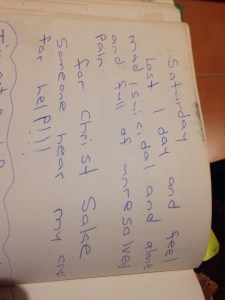 Saturday
Lost 1 day and feel
mad / Suicidal and alone
and full of unresolved
Pain.
for Christ Sake
Someone hear my cry
for help!!!